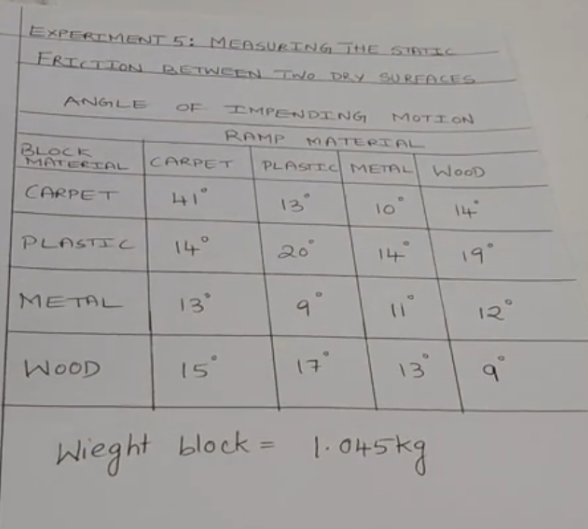 EXPERIMENT 5: MEASURING THE STATIC
FRICTION BETWEEN TWO DRY SURFACES
ANGLE OF IMPENDING MOTION
RAMP MATERIAL
BLOCK MATERIAL CARPET PLASTIC METAL WOOD
CARPET 41° 13° 10° 14°
PLASTIC 14° 20° 14° 19°
METAL 13° 9° 11° 12°
WOOD 15° 17° 13° 9°
Wieght block = 1.045kg